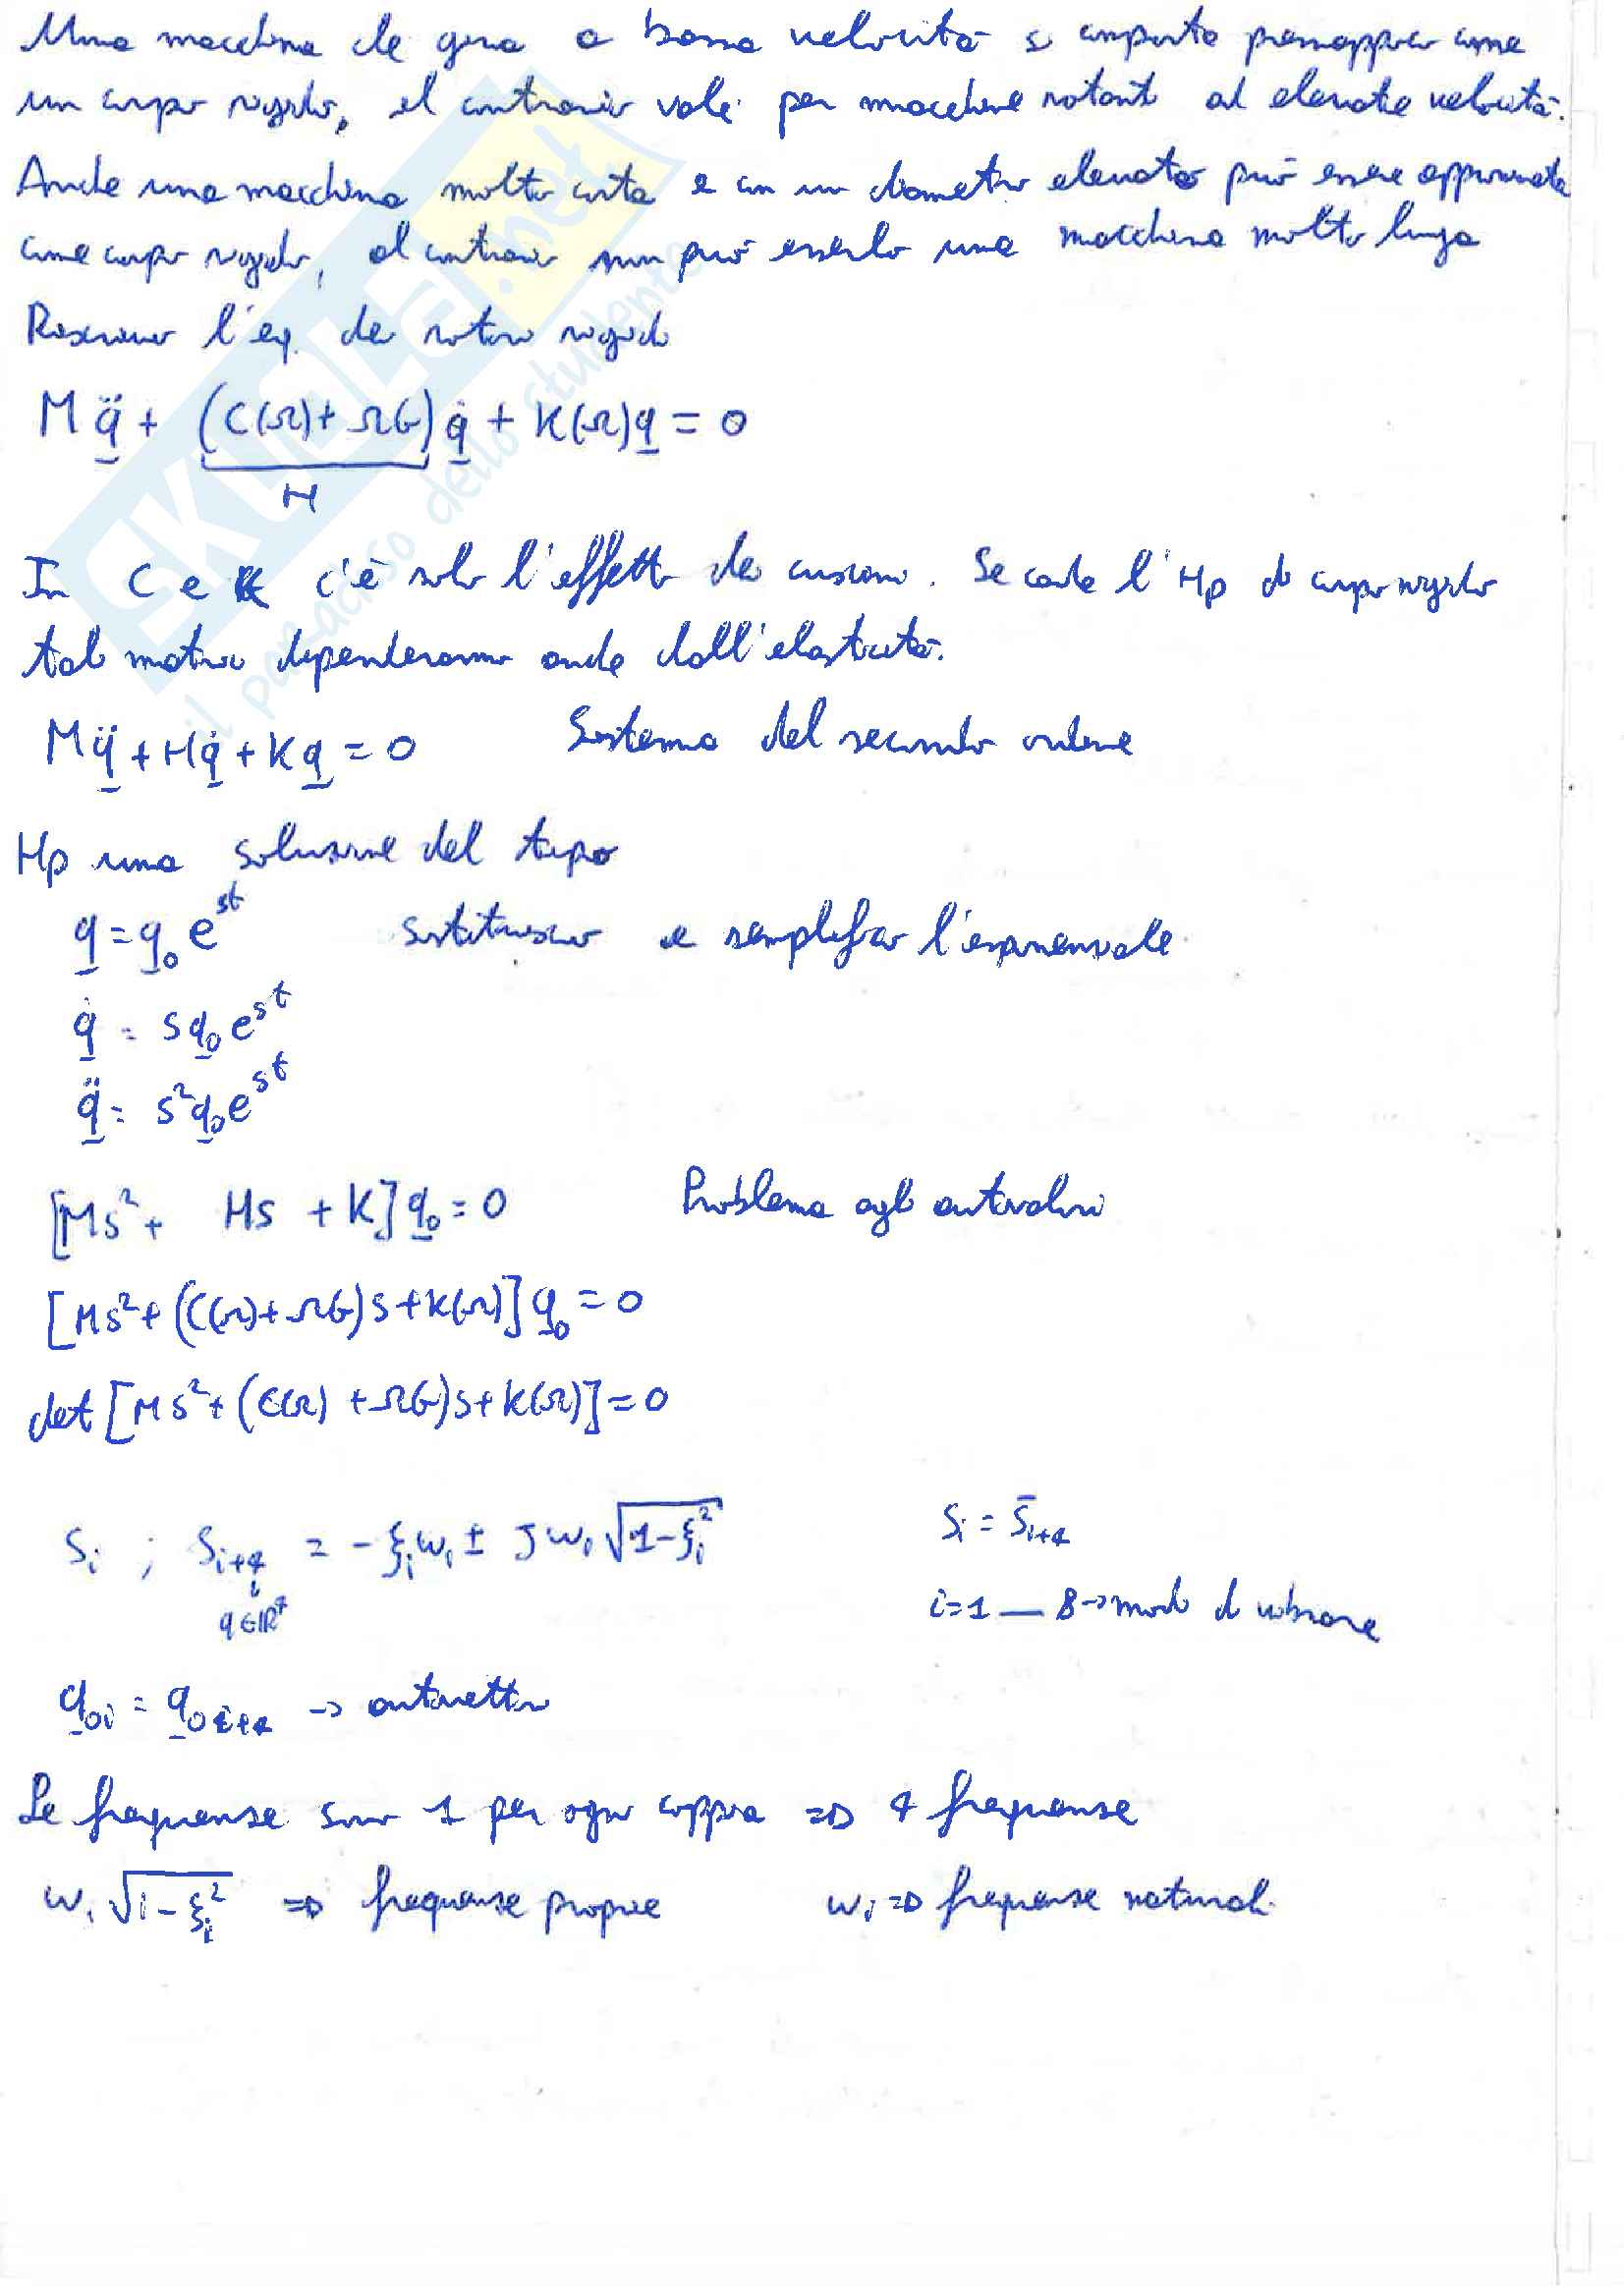 Una macchina che gira a bassa velocità si comporta pressappoco come
un corpo rigido, il contrario vale per macchine rotanti ad elevate velocità.
Anche una macchina molto corta e con un diametro elevato può essere approssimata
come corpo rigido, al contrario non può esserlo una macchina molto lunga
Riscrivo l'eq. del rotore rigido
M q̈ + (C(Ω) + ΩG) q̇ + K(Ω) q = 0
H
In C e K c'è solo l'effetto dei cuscini. Se cade l'Hp di corpo rigido
tali matrici dipenderanno anche dall'elasticità.
M q̈ + H q̇ + K q = 0 Sistema del secondo ordine
Hp una soluzione del tipo
q = q₀ e^st sostituisco e semplifico l'esponenziale
q̇ = s q₀ e^st
q̈ = s² q₀ e^st
[Ms² + Hs + K] q₀ = 0 Problema agli autovalori
[Ms² + (C(Ω) + ΩG)s + K(Ω)] q₀ = 0
det [Ms² + (C(Ω) + ΩG)s + K(Ω)] = 0
Si ; Si+4 = -ξi wi ± J wi √(1-ξi²) Si = S̄i+4
q ∈ ℝ⁴ i=1 — 8 → modi di vibrare
q₀i = q₀i+4 → autovettori
Le frequenze sono 1 per ogni coppia => 4 frequenze
wi √(1-ξi²) => frequenze proprie wi => frequenze naturali
SKUOLA.net
il paradiso dello studente